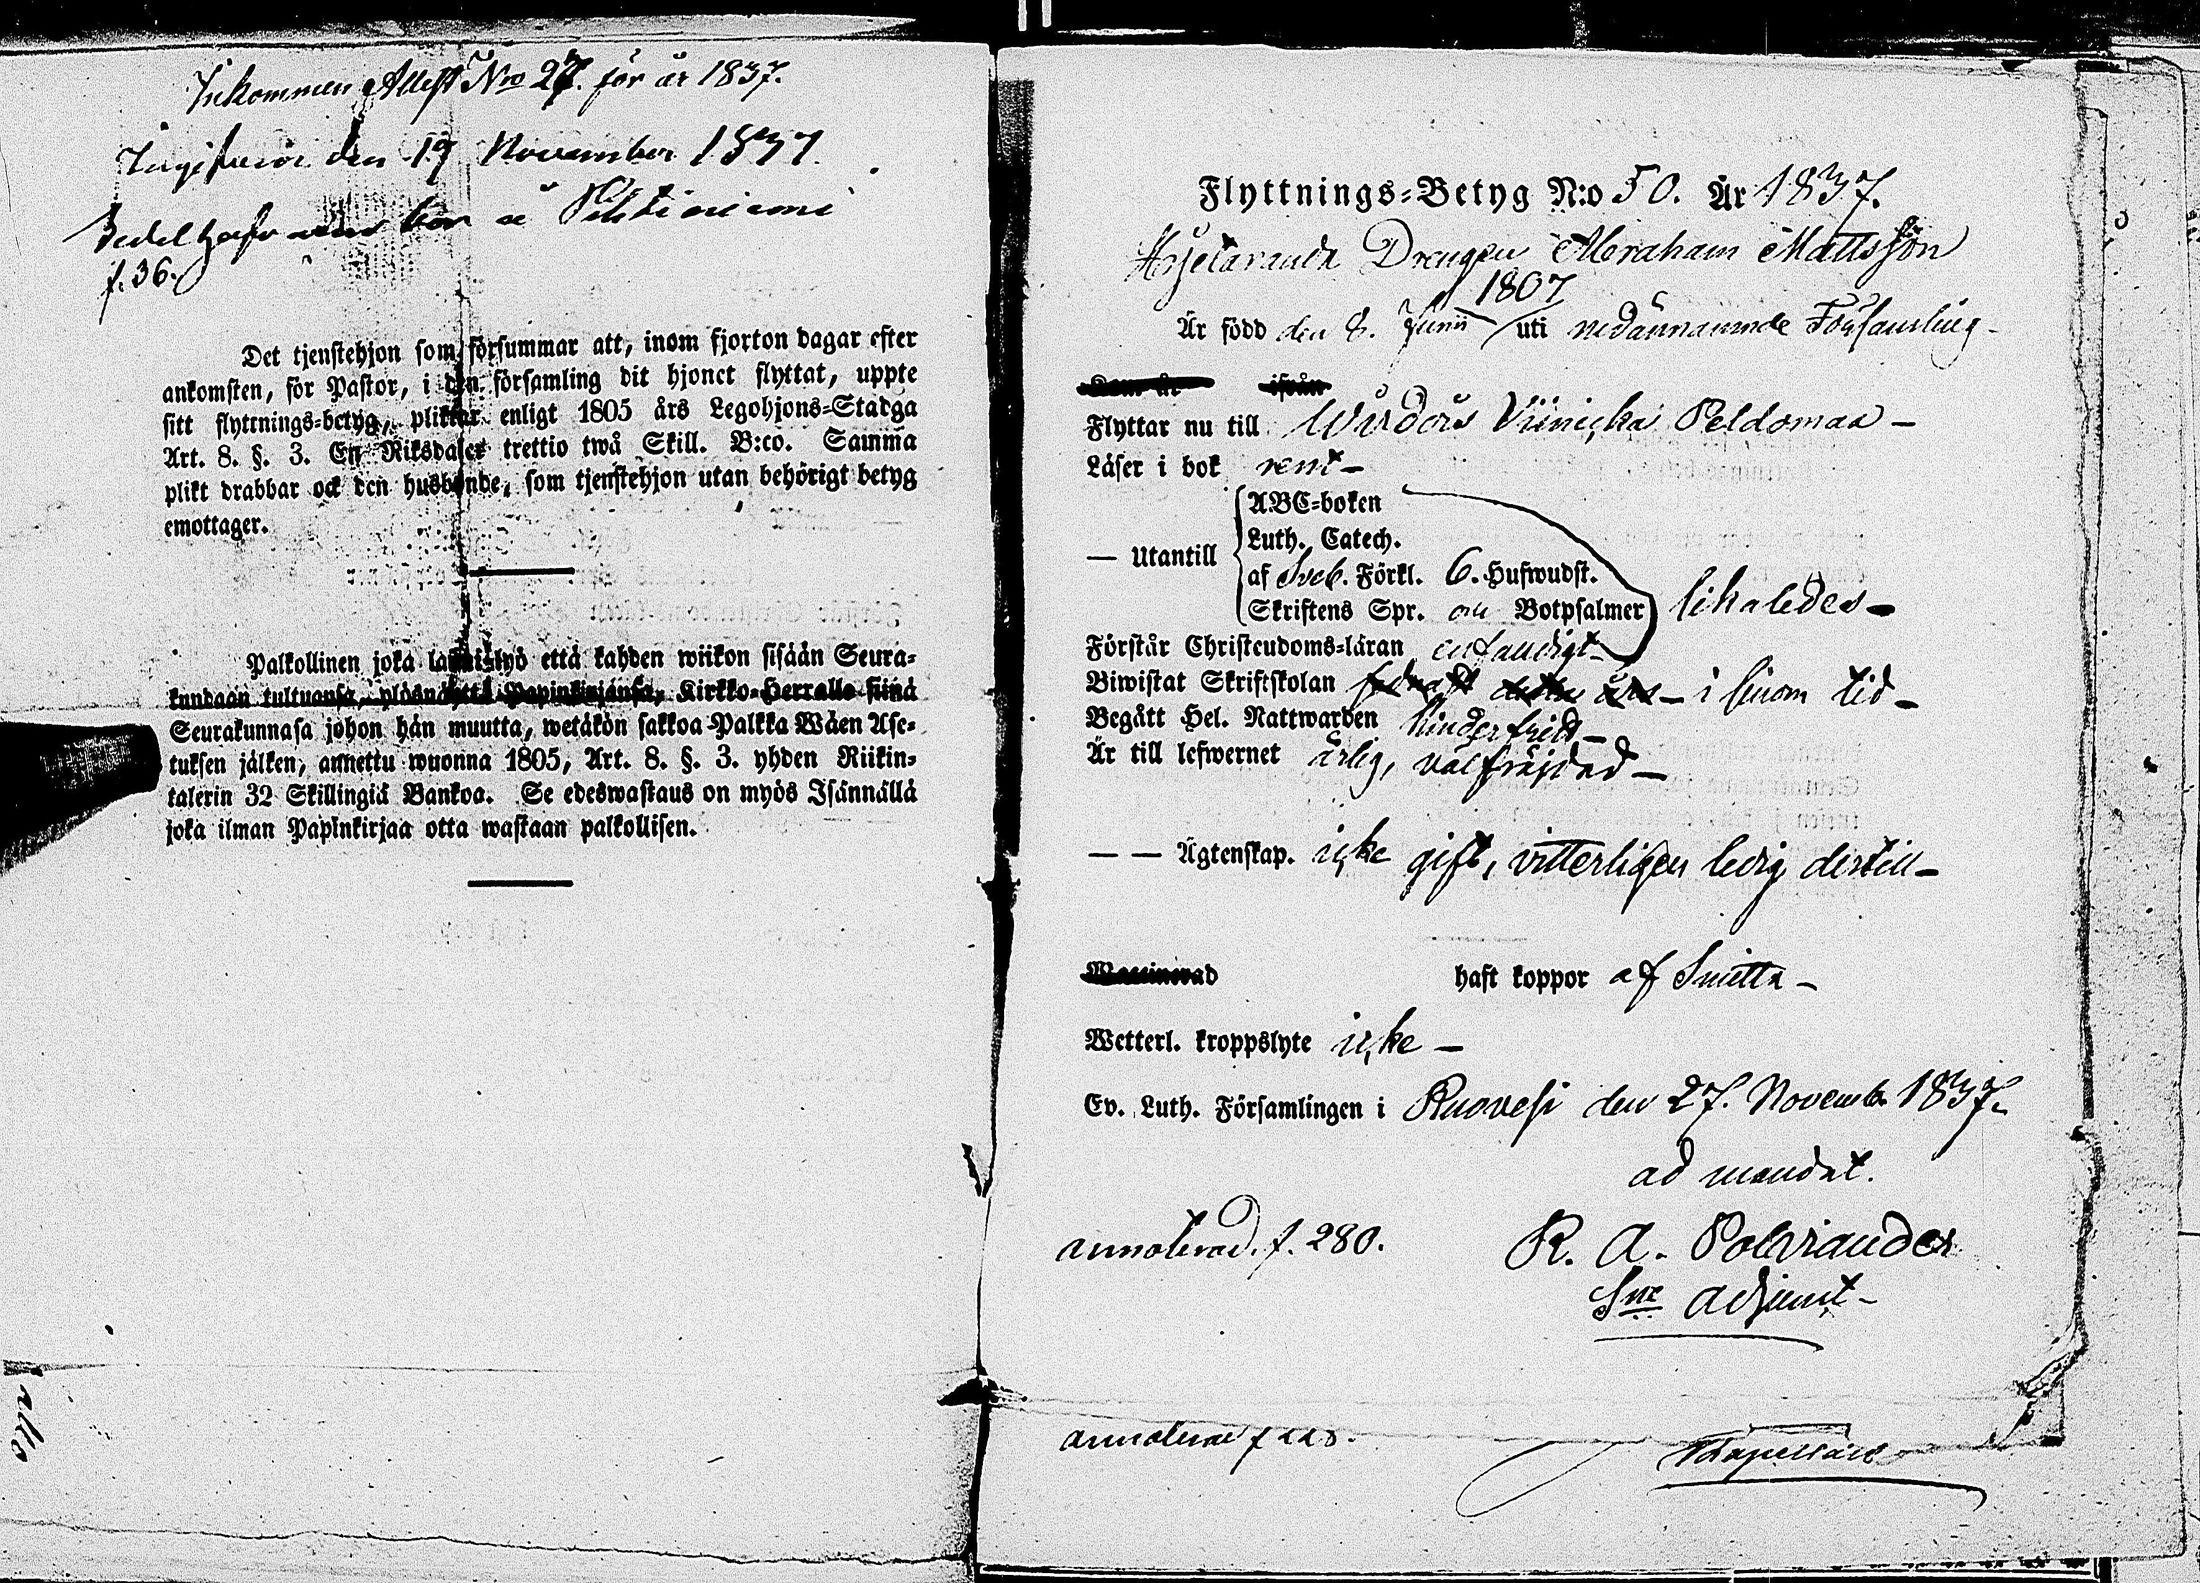 Inkommen Attest Nro 27. för år 1837.
den 19 November 1837.
f. 36.
Det tjenstehjon som försummar att, inom fjorton dagar efter
ankomsten, för Pastor, i den församling dit hjonet flyttat, uppte
sitt flyttnings-betyg, pliktar enligt 1805 års Legohjons-Stadga
Art. 8. §. 3. En Riksdaler trettio twå Skill. B:co. Samma
plikt drabbar ock den husbonde, som tjenstehjon utan behörigt betyg
emottager.
Palkollinen joka laiminlyö että kahden wiikon sisään Seura-
kundaan tultuansa, ylösnäyttä Papinkirjansa, Kirkko-Herralle siinä
Seurakunnasa johon hän muutta, wetäkön sakkoa Palkka Wäen Ase-
tuksen jälken, annettu wuonna 1805, Art. 8. §. 3. yhden Riikin-
talerin 32 Skillingiä Bankoa. Se edeswastaus on myös Isännällä
joka ilman Papinkirjaa otta wastaan palkollisen.
Flyttnings-Betyg N:o 50. År 1837.
Drengen Abraham Mattsson
1807
Är född den 8. Junii uti nedannämnde Församling -
Flyttar nu till Wårdois Viinicka Peldomaa -
Läser i bok rent -
ABC-boken
Luth. Catech.
— Utantill
af Sveb. Förkl. 6. Hufwudst.
Skriftens Spr. och Botpsalmer likaledes -
Förstår Christendoms-läran enfaldigt -
Biwistat Skriftskolan i linom tid -
Begått Hel. Nattwarden hinderfritt -
Är till lefwernet ärlig, välfräjdad -
— — Ägtenskap. icke gift, vitterligen ledig dertill -
Waccinerad haft koppor af Smitta -
Wetterl. kroppslyte icke -
Ev. Luth. Församlingen i Ruovesi den 27. Novemb. 1837.
ad mandat.
annoterad. f. 280.
R. A. Polviander
Sne Adjunct -